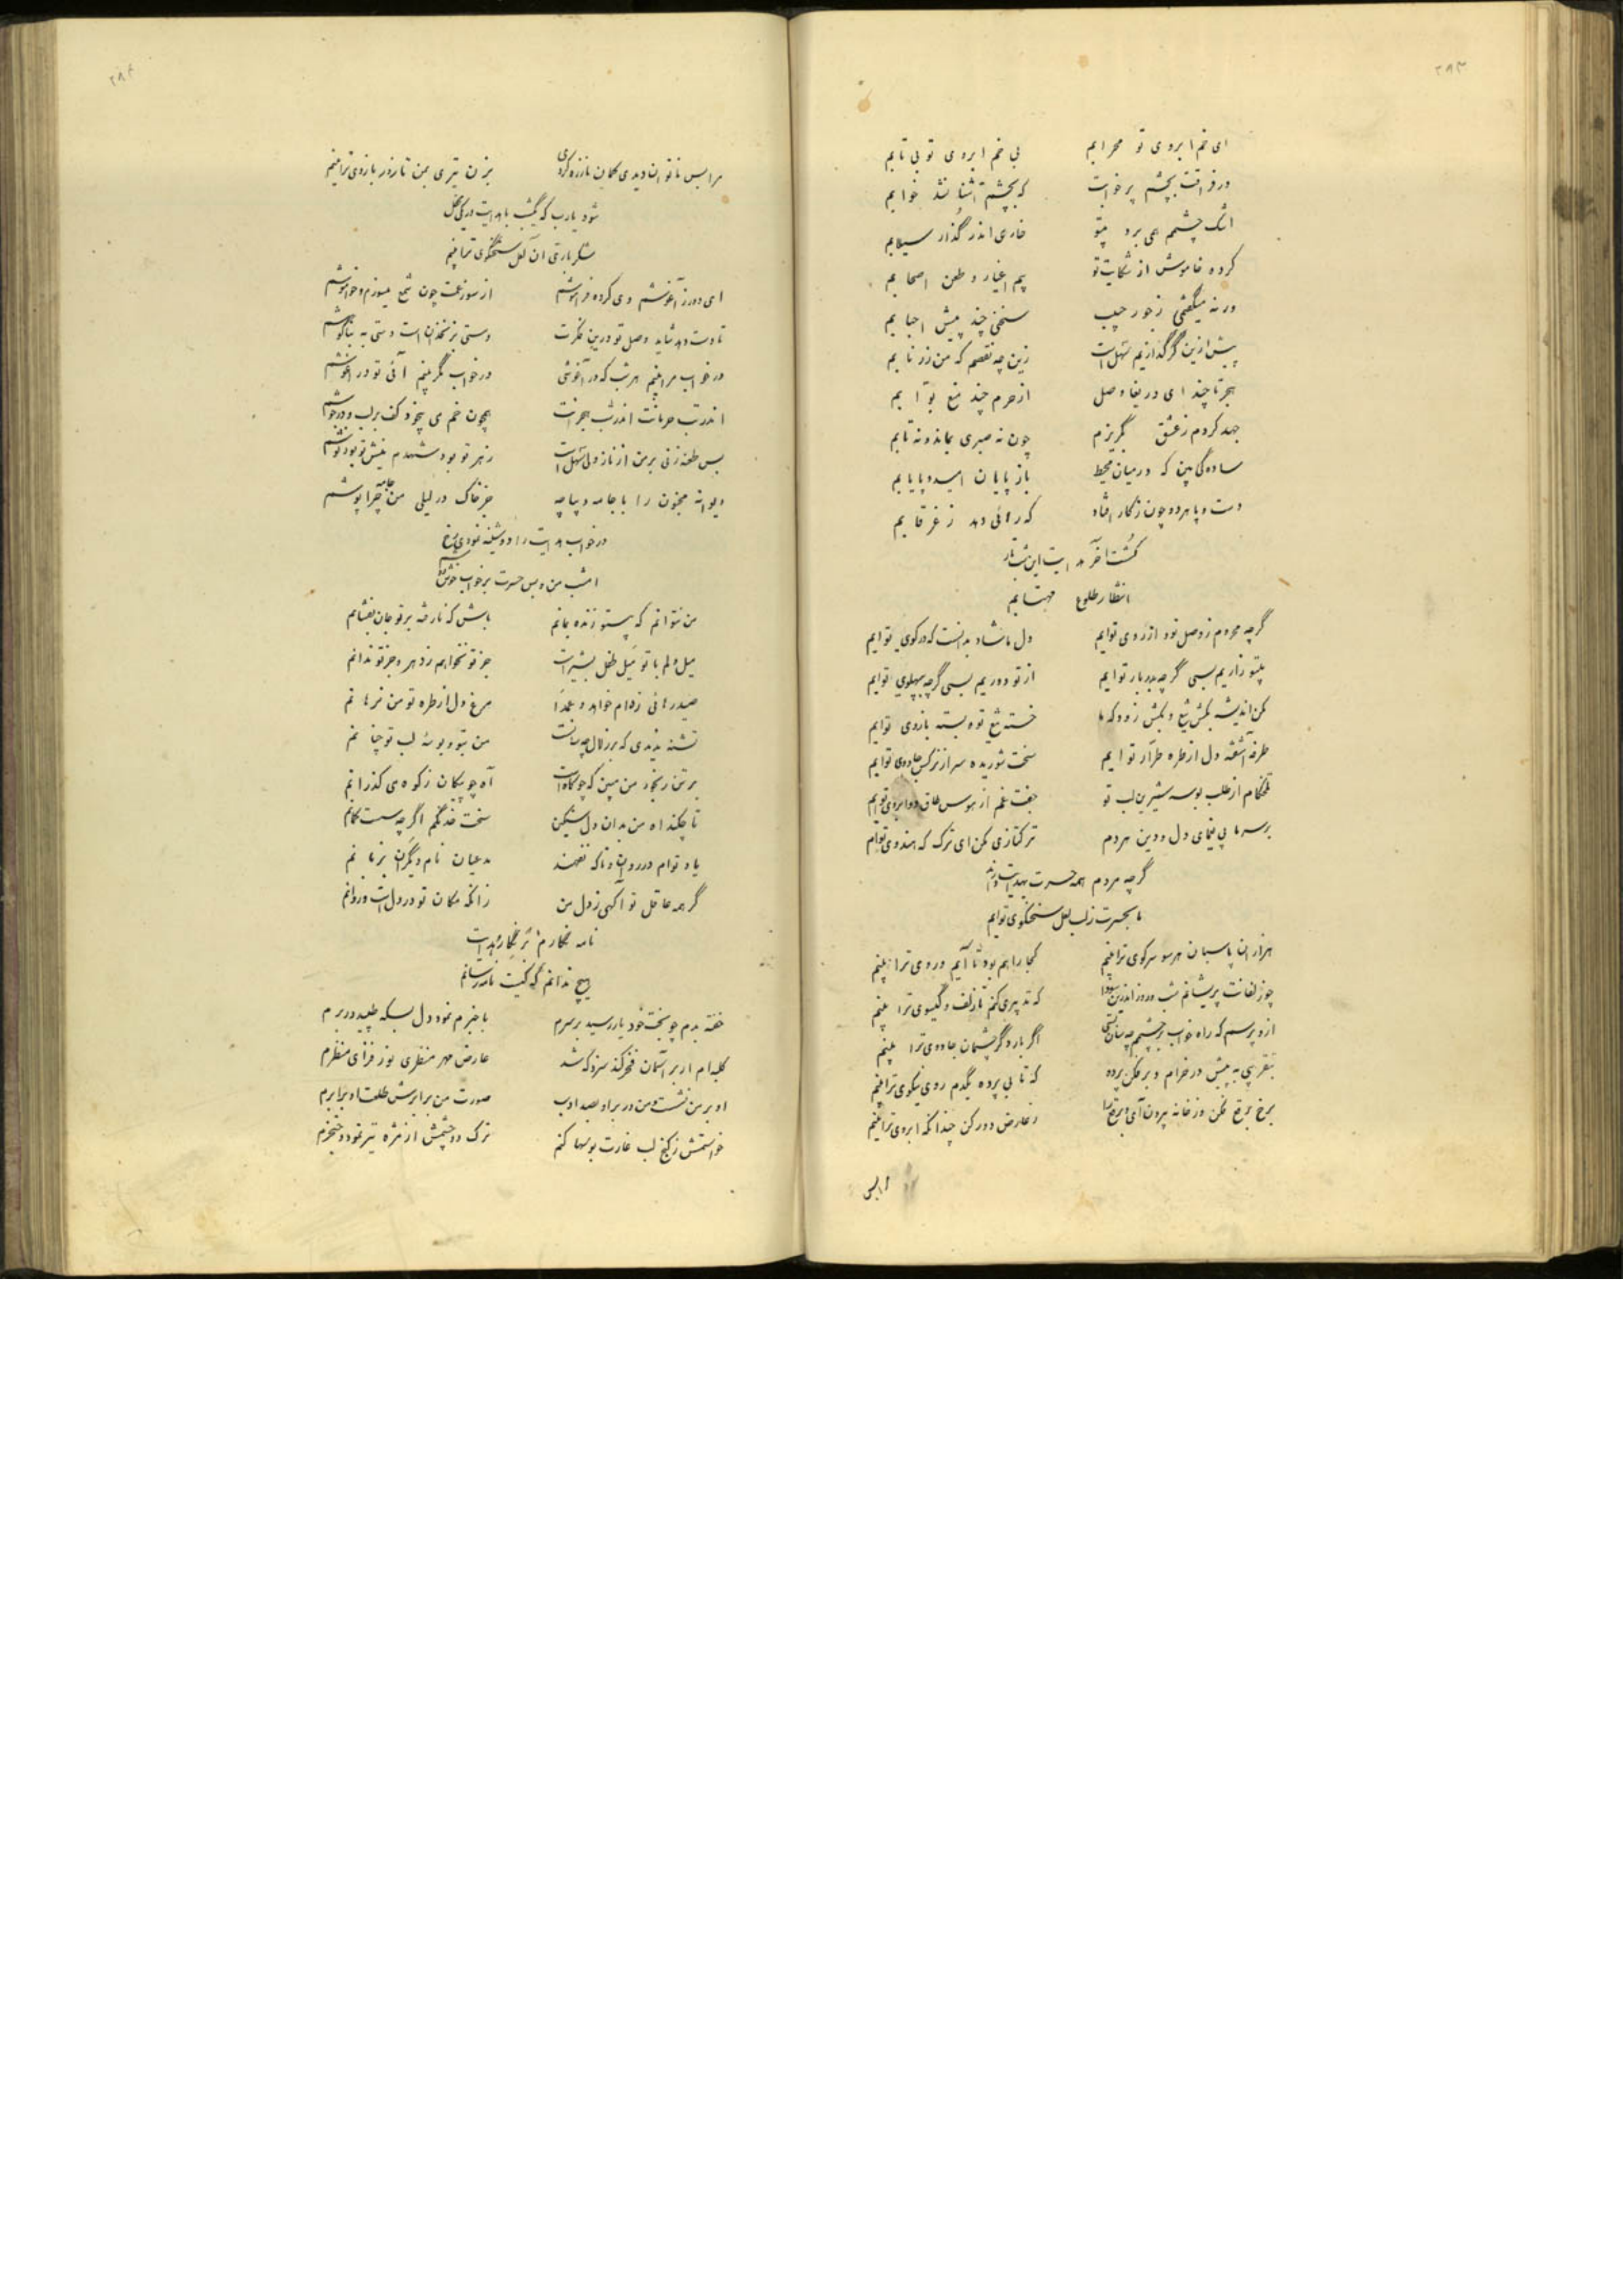 ۲۸۳
ای خم ابروی تو محرابم بی خم ابروی تو بی تابم
در فراقت بچشم پر خوابت که بچشم آشنا نشد خوابم
اشک چشمم همی برد بیتو خاری اندر گذار سیلابم
کرده خاموش از شکایت تو بیم اغیار و طعن اصحابم
ورنه میگفتمی ز جور حبیب سخنی چند پیش احبابم
پیش ازین گر گدازیم سهل است زین چه نقصم که من زر نابم
هجر تا چند ای دریغا وصل از حرم چند منع بوابم
جهد کردم ز عشق بگریزم چون نه صبری بماند و نه تابم
ساده گی بین که در میان محیط باز پایان امید و پایابم
دست و پا مرده چون ز کار افتاد که رهائی دهد ز غرقابم
کشت آخر هدایت این شب تار
انتظار طلوع مهتابم
گرچه محروم ز وصل تو و از روی توایم دل ما شاد بدانست که در کوی توایم
بیتو زاریم بسی گرچه بدربار توایم از تو دوریم بسی گرچه بپهلوی توایم
مکن اندیشه بکش تیغ و بکش زود که ما خسته تیغ تو و بسته بازوی توایم
طرفه آشفته دل از طره طرار توایم سخت شوریده سر از نرگس جادوی توایم
تلخکام از طلب بوسه شیرین لب تو جفت غم از هوس طاق دو ابروی توایم
بر سر ما پی یغمای دل و دین مردم ترکتازی مکن ای ترک که هندوی توایم
گرچه مردم همه حسرت بهدایت دارند
ما بحسرت ز لب لعل سخنگوی توایم
هزاران پاسبان هر سو سر کوی ترا بینم کجا راهم بود تا آیم و روی ترا بینم
چو زلفانت پریشانم شب و روز اندرین سودا که تدبیری کنم تا زلف و گیسوی ترا بینم
ازو پرسم که راه خواب بر چشمم چه سان بستی اگر بار دگر چشمان جادوی ترا بینم
بتقریبی به پیش در خرام و بر فکن پرده که تا بی پرده یکدم روی نیکوی ترا بینم
برخ برقع فکن وز خانه بیرون آی و برقع را ز عارض دور کن چندانکه ابروی ترا بینم
مرا بس
۲۸۴
مرا بس ناتوان دیدی کمان ناززه کردی بزن تیری بمن تا زور بازوی ترا بینم
شود یارب که یکشب با هدایت در یکی محفل
شکرباری آن لعل سخنگوی ترا بینم
ای دور ز آغوشم وی کرده فراموشم از سوز غمت چون شمع میسوزم و خاموشم
تا دست دهد شاید وصل تو درین فکرت دستی بزنخدان است دستی به بناگوشم
در خواب مرا بینم هر شب که در آغوشی در خواب مگر بینم آئی تو در آغوشم
اندر تب حرمانت اندر شب هجرانت همچون خم می بیخود کف بر لب و در جوشم
بس طعنه زنی بر من از ناز ولی سهل است زهر تو بود شهدم نیش تو بود نوشم
دیوانه مجنون را با جامه و پا چه جز خاک در لیلی من جامه چرا پوشم
در خواب هدایت را دوشینه نمودی رخ
امشب من و بس حسرت بر خواب خوش دوشم
من نتوانم که بیتو زنده بمانم باش که تا رفته بر تو جان بفشانم
میل دلم با تو میل طفل بشیر است جز تو نخواهم ز دهر و جز تو ندانم
صید رهائی ز دام خواهد و عمدا مرغ دل از طره تو من نرهانم
تشنه ندیدی که بر زلال چه سانست من بتو و بوسه لب تو چنانم
بر تن رنجور من مبین که چو کاه است آه چو پیکان ز کوه می گذرانم
تا چکند آه من بدان دل سنگین سخت خدنگم اگرچه سست کمانم
یاد توام در روان و تا که نفهمند مدعیان نام دیگران بزبانم
گر همه غافل تو آگهی ز دل من زانکه مکان تو در دل است و روانم
نامه نگارم بر نگار هدایت
هیچ ندانم که کیست نامه رسانم
خفته بدم چو بخت خود یار رسید بر سرم با خبرم نمود دل بسکه طپید در برم
کلبه ام ار بر آسمان فخر کند سزد که شد عارض مهر منظری نور فزای منظرم
او بر من نشست و من در بر او بصد ادب صورت من برابرش طلعت او برابرم
خواستمش ز کنج لب غارت بوسها کنم ترک دو چشمش از مژه تیر نمود و خنجرم